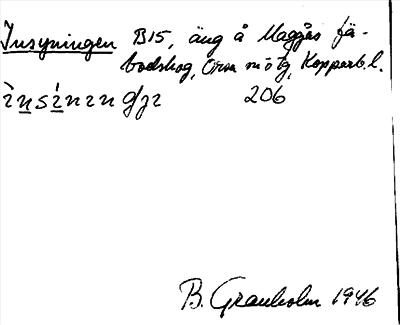 Insyningen B15, äng å Maggås fä-
bodskog, Orsa m o tg, Kopparb.l.
206
B. Granholm 1946